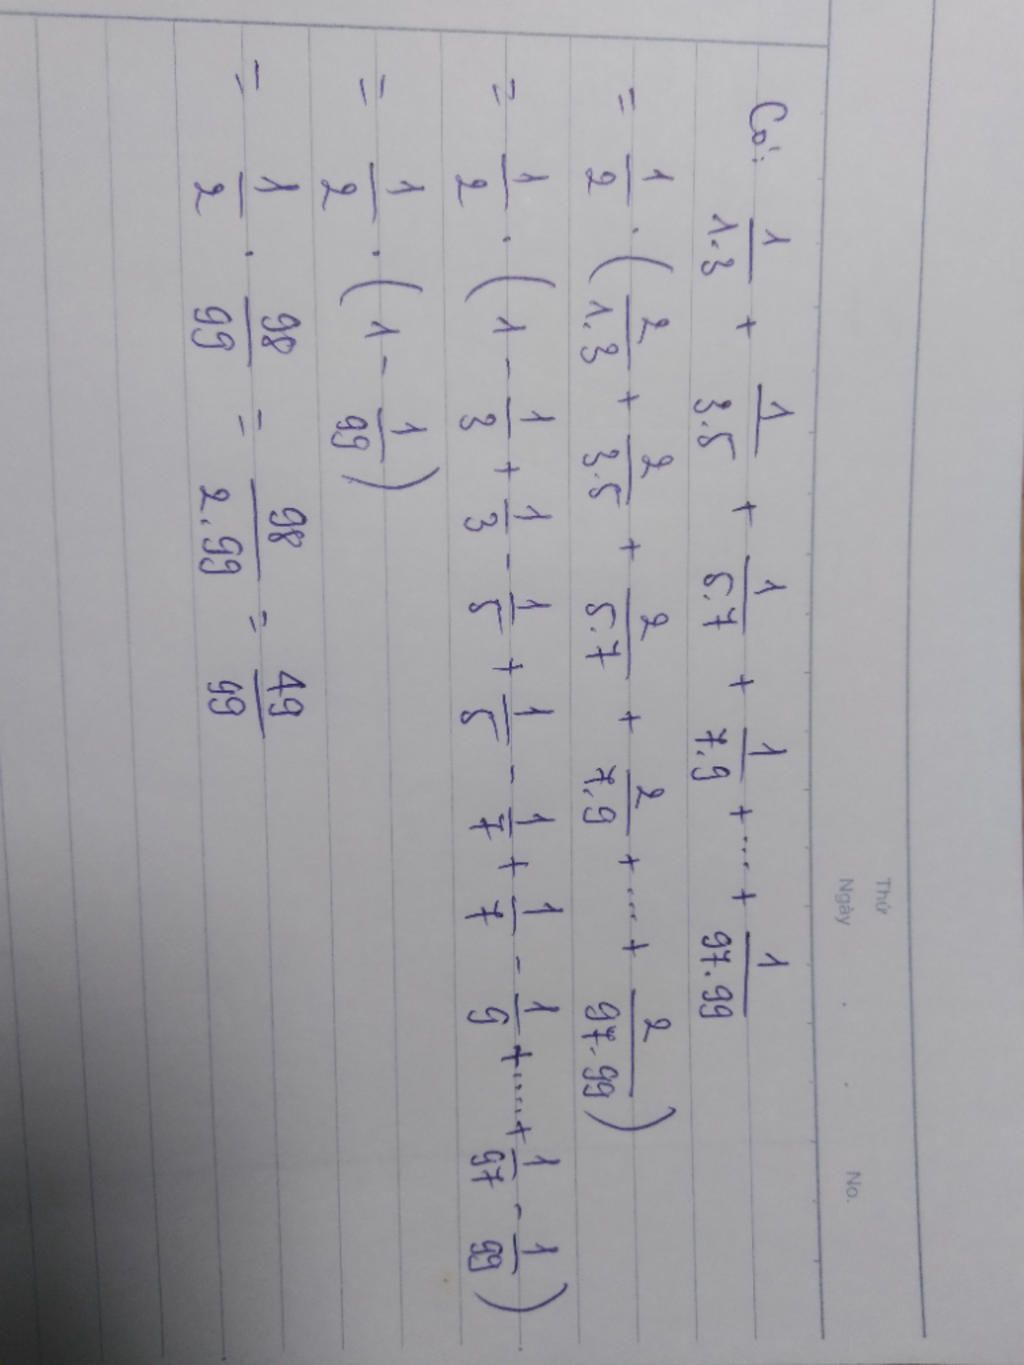 Thứ
Ngày . . No.
Có: 1/1.3 + 1/3.5 + 1/5.7 + 1/7.9 + ... + 1/97.99
= 1/2 . ( 2/1.3 + 2/3.5 + 2/5.7 + 2/7.9 + ... + 2/97.99 )
= 1/2 . ( 1 - 1/3 + 1/3 - 1/5 + 1/5 - 1/7 + 1/7 - 1/9 + ..... + 1/97 - 1/99 )
= 1/2 . ( 1 - 1/99 )
= 1/2 . 98/99 = 98/2.99 = 49/99